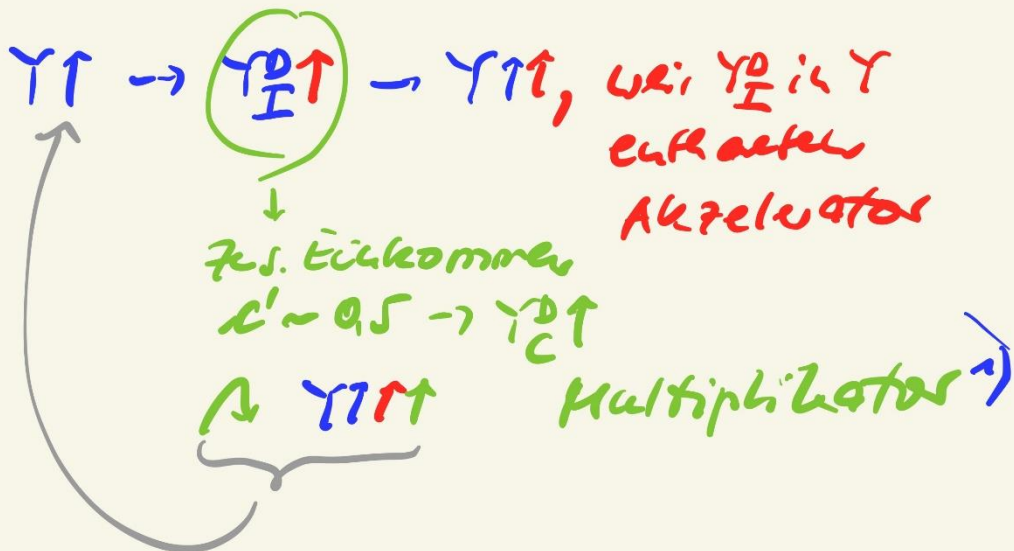 Y↑ → Y^D_I ↑ → Y↑↑, weil Y^D_I in Y
enthalten
Akzelerator
↓
Zus. Einkommen
c' ~ 0,5 → Y^D_C ↑
Y↑↑↑
Multiplikator 1)